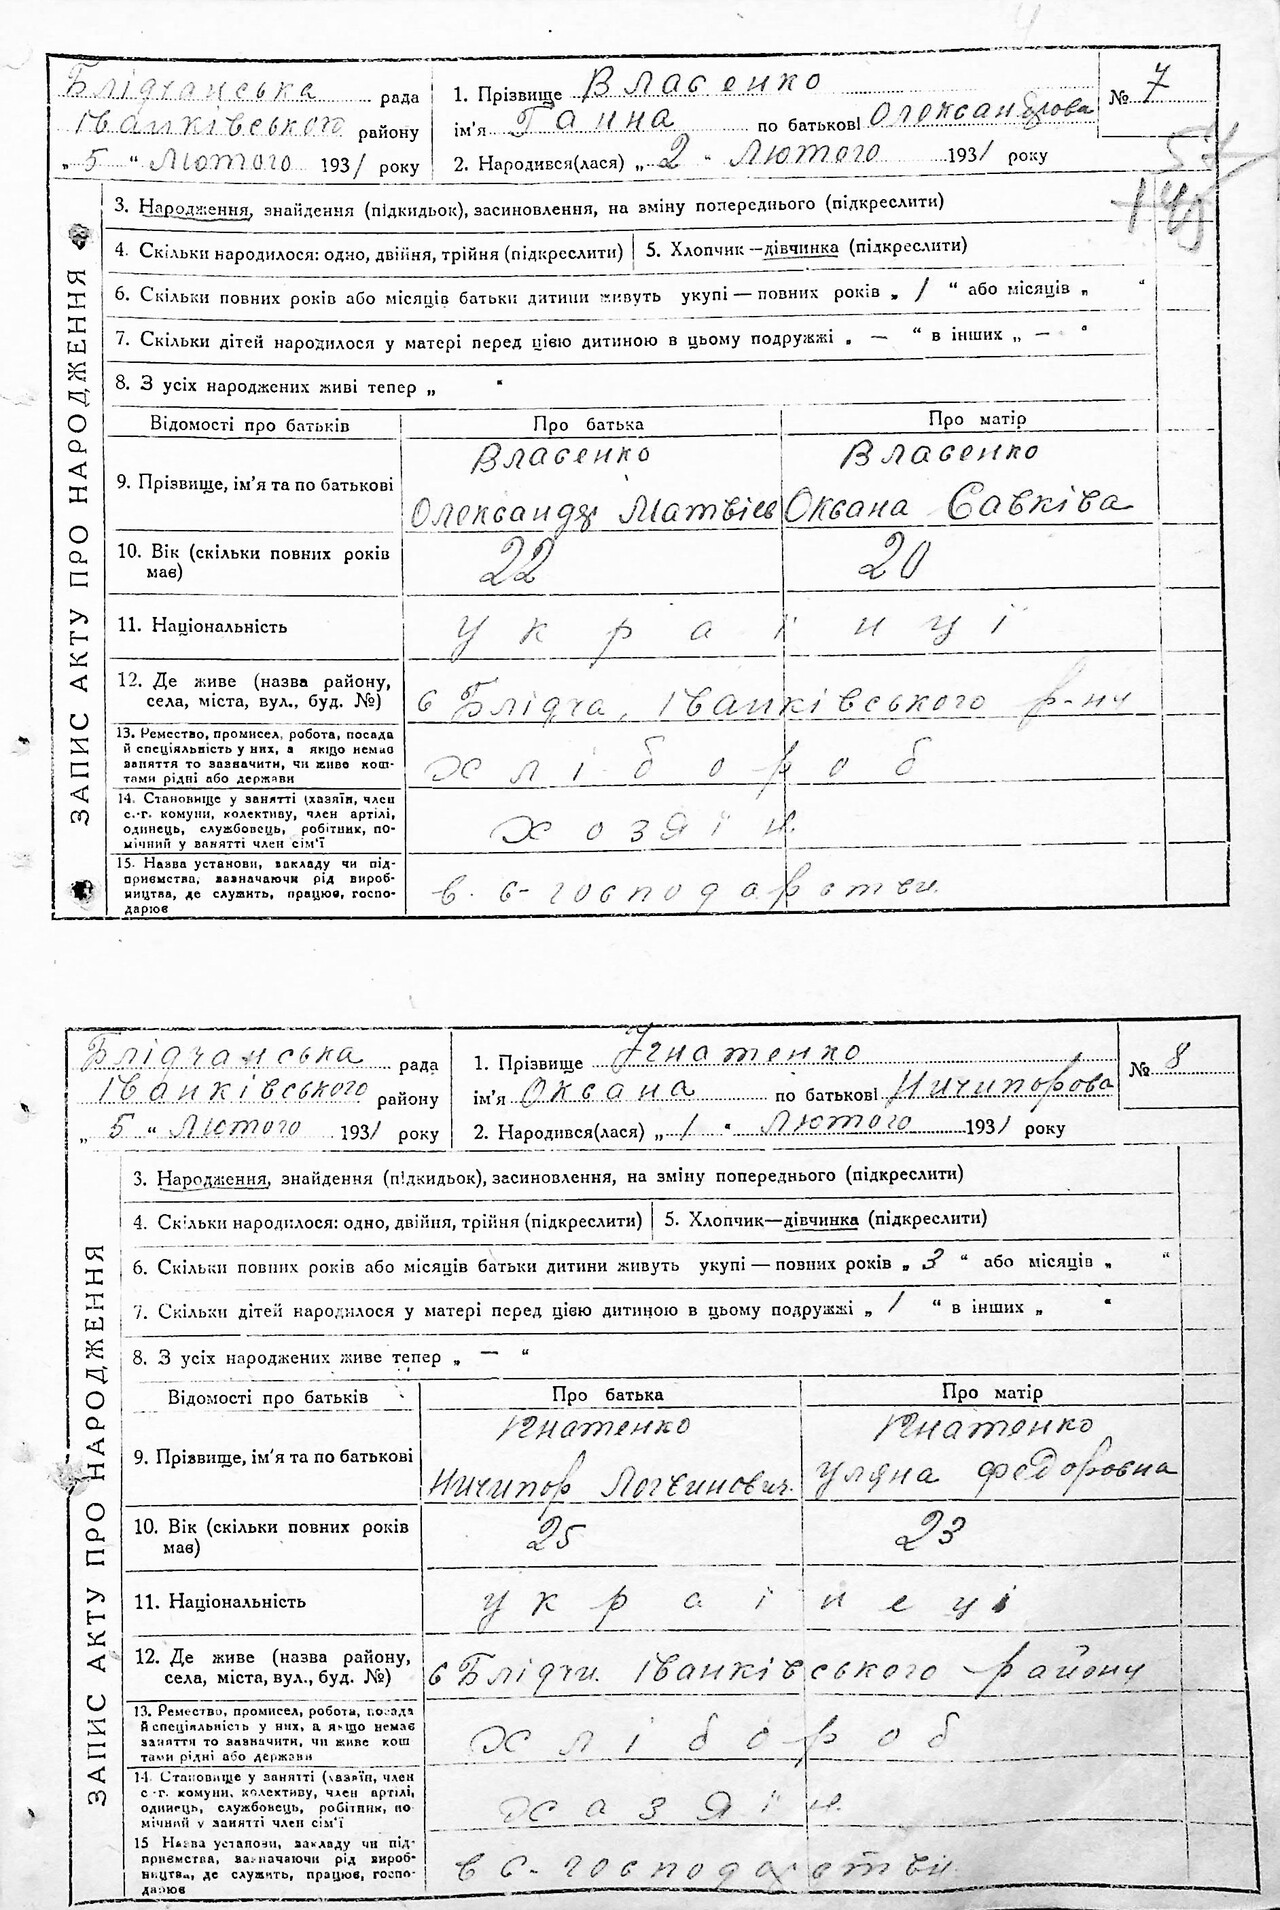 Блідчанська рада 1. Прізвище Власенко № 7
Іванківського району ім'я Ганна по батькові Олександрова
„ 5 “ Лютого 1931 року 2. Народився(лася) „ 2 “ Лютого 1931 року
ЗАПИС АКТУ ПРО НАРОДЖЕННЯ
3. Народження, знайдення (підкидьок), засиновлення, на зміну попереднього (підкреслити)
4. Скільки народилося: одно, двійня, трійня (підкреслити) 5. Хлопчик—дівчинка (підкреслити)
6. Скільки повних років або місяців батьки дитини живуть укупі — повних років „ 1 “ або місяців „ “
7. Скільки дітей народилося у матері перед цією дитиною в цьому подружжі „ — “ в інших „ — “
8. З усіх народжених живі тепер „ “
Відомості про батьків Про батька Про матір
Власенко Власенко
9. Прізвище, ім'я та по батькові Олександр Матвіев Оксана Савківа
10. Вік (скільки повних років має) 22 20
11. Національність українці
12. Де живе (назва району, села, міста, вул., буд. №) с Блідча, Іванківського р-ну
13. Ремество, промисел, робота, посада
й спеціяльність у них, а якщо немає
заняття то зазначити, чи живе кош-
тами рідні або держави хлібороб
14. Становище у занятті (хазяїн, член
с.-г. комуни, колективу, член артілі,
одинець, службовець, робітник, по-
мічний у занятті член сім'ї хозяїн
15. Назва установи, закладу чи під-
приємства, зазначаючи рід вироб-
ництва, де служить, працює, госпо-
дарює в с-господарстви
Блідчанська рада 1. Прізвище Ігнатенко № 8
Іванківського району ім'я Оксана по батькові Ничипорова
„ 5 “ Лютого 1931 року 2. Народився(лася) „ 1 “ Лютого 1931 року
ЗАПИС АКТУ ПРО НАРОДЖЕННЯ
3. Народження, знайдення (підкидьок), засиновлення, на зміну попереднього (підкреслити)
4. Скільки народилося: одно, двійня, трійня (підкреслити) 5. Хлопчик—дівчинка (підкреслити)
6. Скільки повних років або місяців батьки дитини живуть укупі — повних років „ 3 “ або місяців „ “
7. Скільки дітей народилося у матері перед цією дитиною в цьому подружжі „ 1 “ в інших „ “
8. З усіх народжених живе тепер „ — “
Відомості про батьків Про батька Про матір
Ігнатенко Ігнатенко
9. Прізвище, ім'я та по батькові Ничипор Логвинович Уляна Федоровна
10. Вік (скільки повних років має) 25 23
11. Національність українеці
12. Де живе (назва району, села, міста, вул., буд. №) с Блідчи Іванківського району
13. Ремество, промисел, робота, посада
й спеціяльність у них, а якщо немає
заняття то зазначити, чи живе кош
тами рідні або держави хлібороб
14. Становище у занятті (хазяїн, член
с-г. комуни, колективу, член артілі,
одинець, службовець, робітник, по
мічний у занятті член сім'ї хазяїн
15 Назва установи, закладу чи під-
приємства, зазначаючи рід вироб-
ництва, де служить, працює, госпо-
дарює в с-господарстви